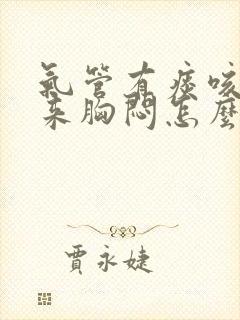 氣管有痰咳
來胸悶怎麼
賈永婕